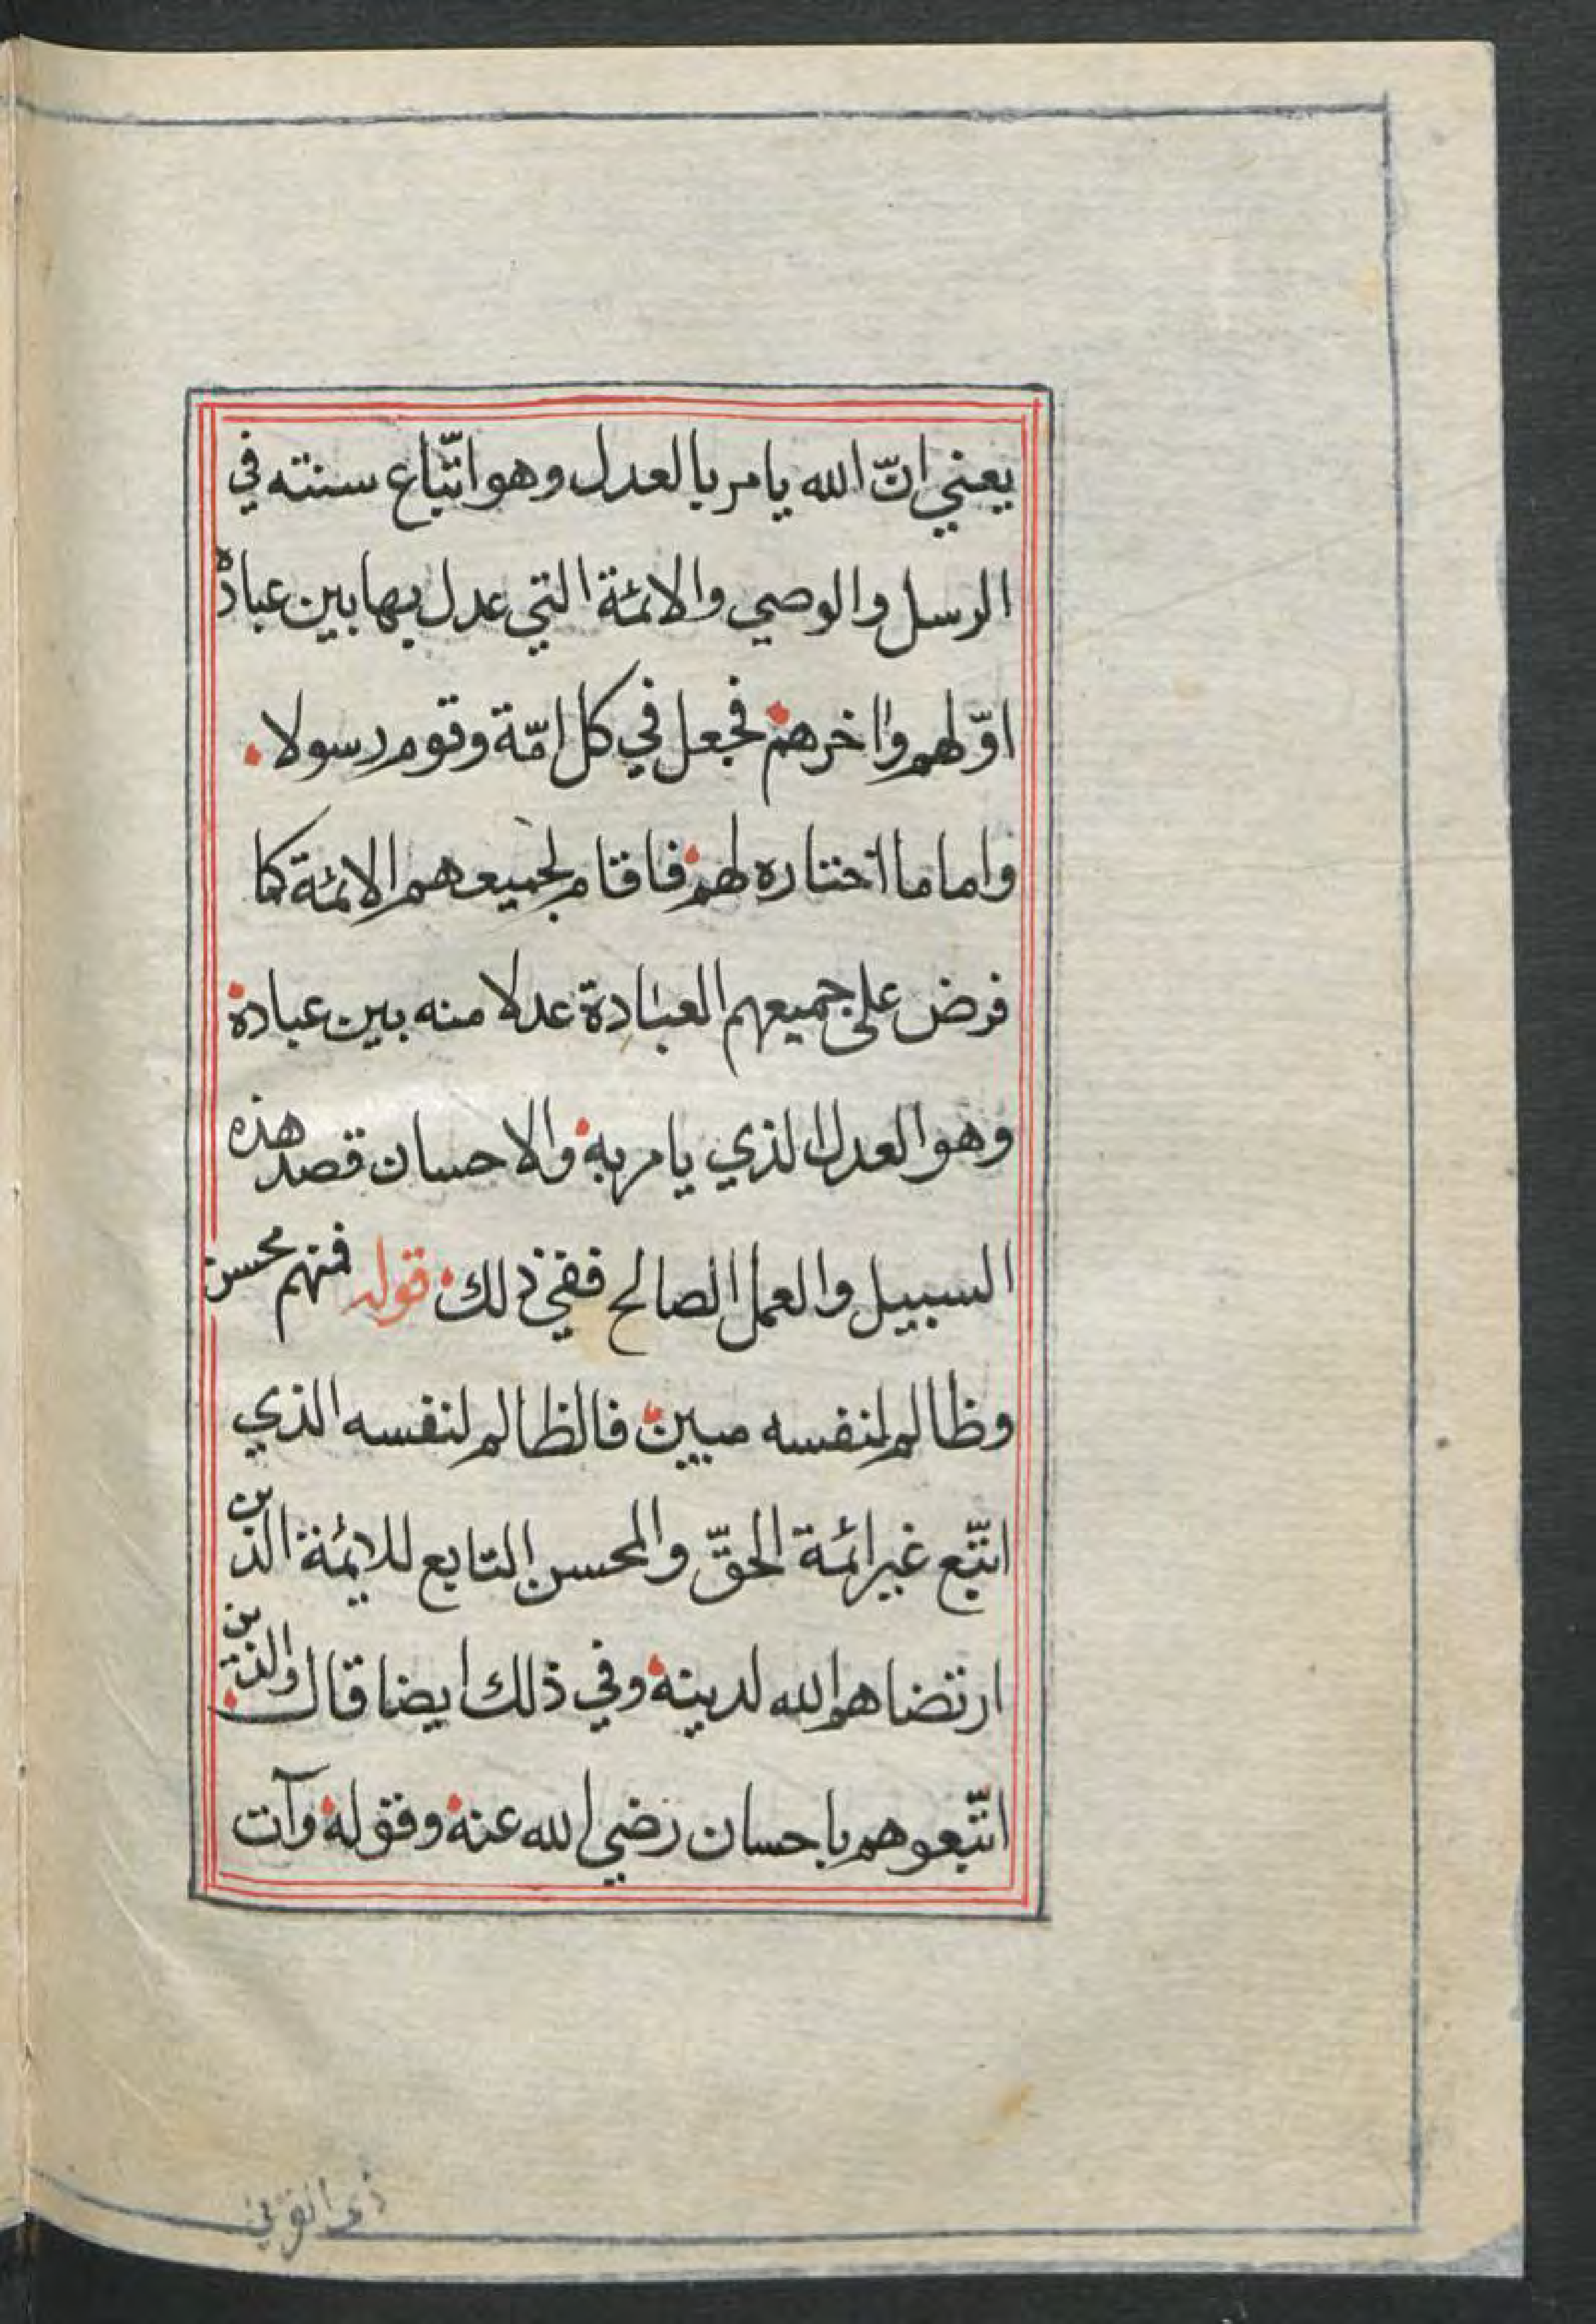 يعني انّ الله يامر بالعدل وهو اتّباع سنته في
الرسل والوصي والائمة التي عدل بها بين عباده
اوّلهم واخرهم فجعل في كل امّة وقوم رسولا
واماما اختاره لهم فاقام لجميعهم الائمة كما
فرض على جميعهم العبادة عدلا منه بين عباده
وهو العدل الذي يامر به والاحسان قصد هذه
السبيل والعمل الصالح ففي ذلك قوله فمنهم محسن
وظالم لنفسه مبين فالظالم لنفسه الذي
اتّبع غير ائمة الحقّ والمحسن التابع للائمة الذين
ارتضاهم الله لدينه وفي ذلك ايضا قال والذين
اتّبعوهم باحسان رضي الله عنه وفقوله وآت
ذى القربى